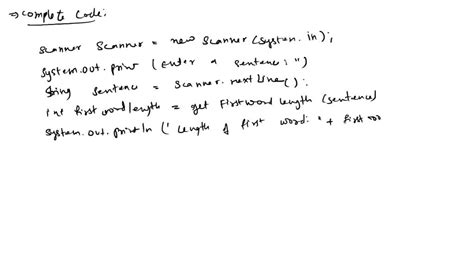 ⇒ complete code:
Scanner Scanner = new Scanner (System. in);
System.out. print (Enter a sentence: ")
String sentence = Scanner. nextline():
int first word length = get First word Length (sentence)
System. out. println (" Length of first word: " + first wo